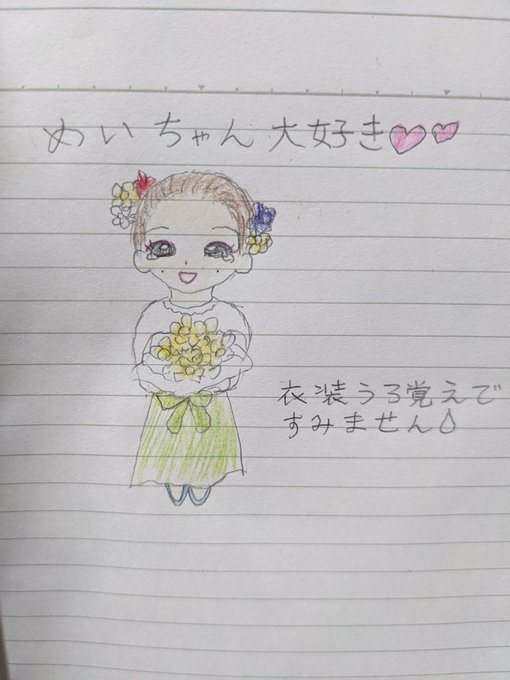 めいちゃん大好き♥♥
衣装うろ覚えで
すみません💧